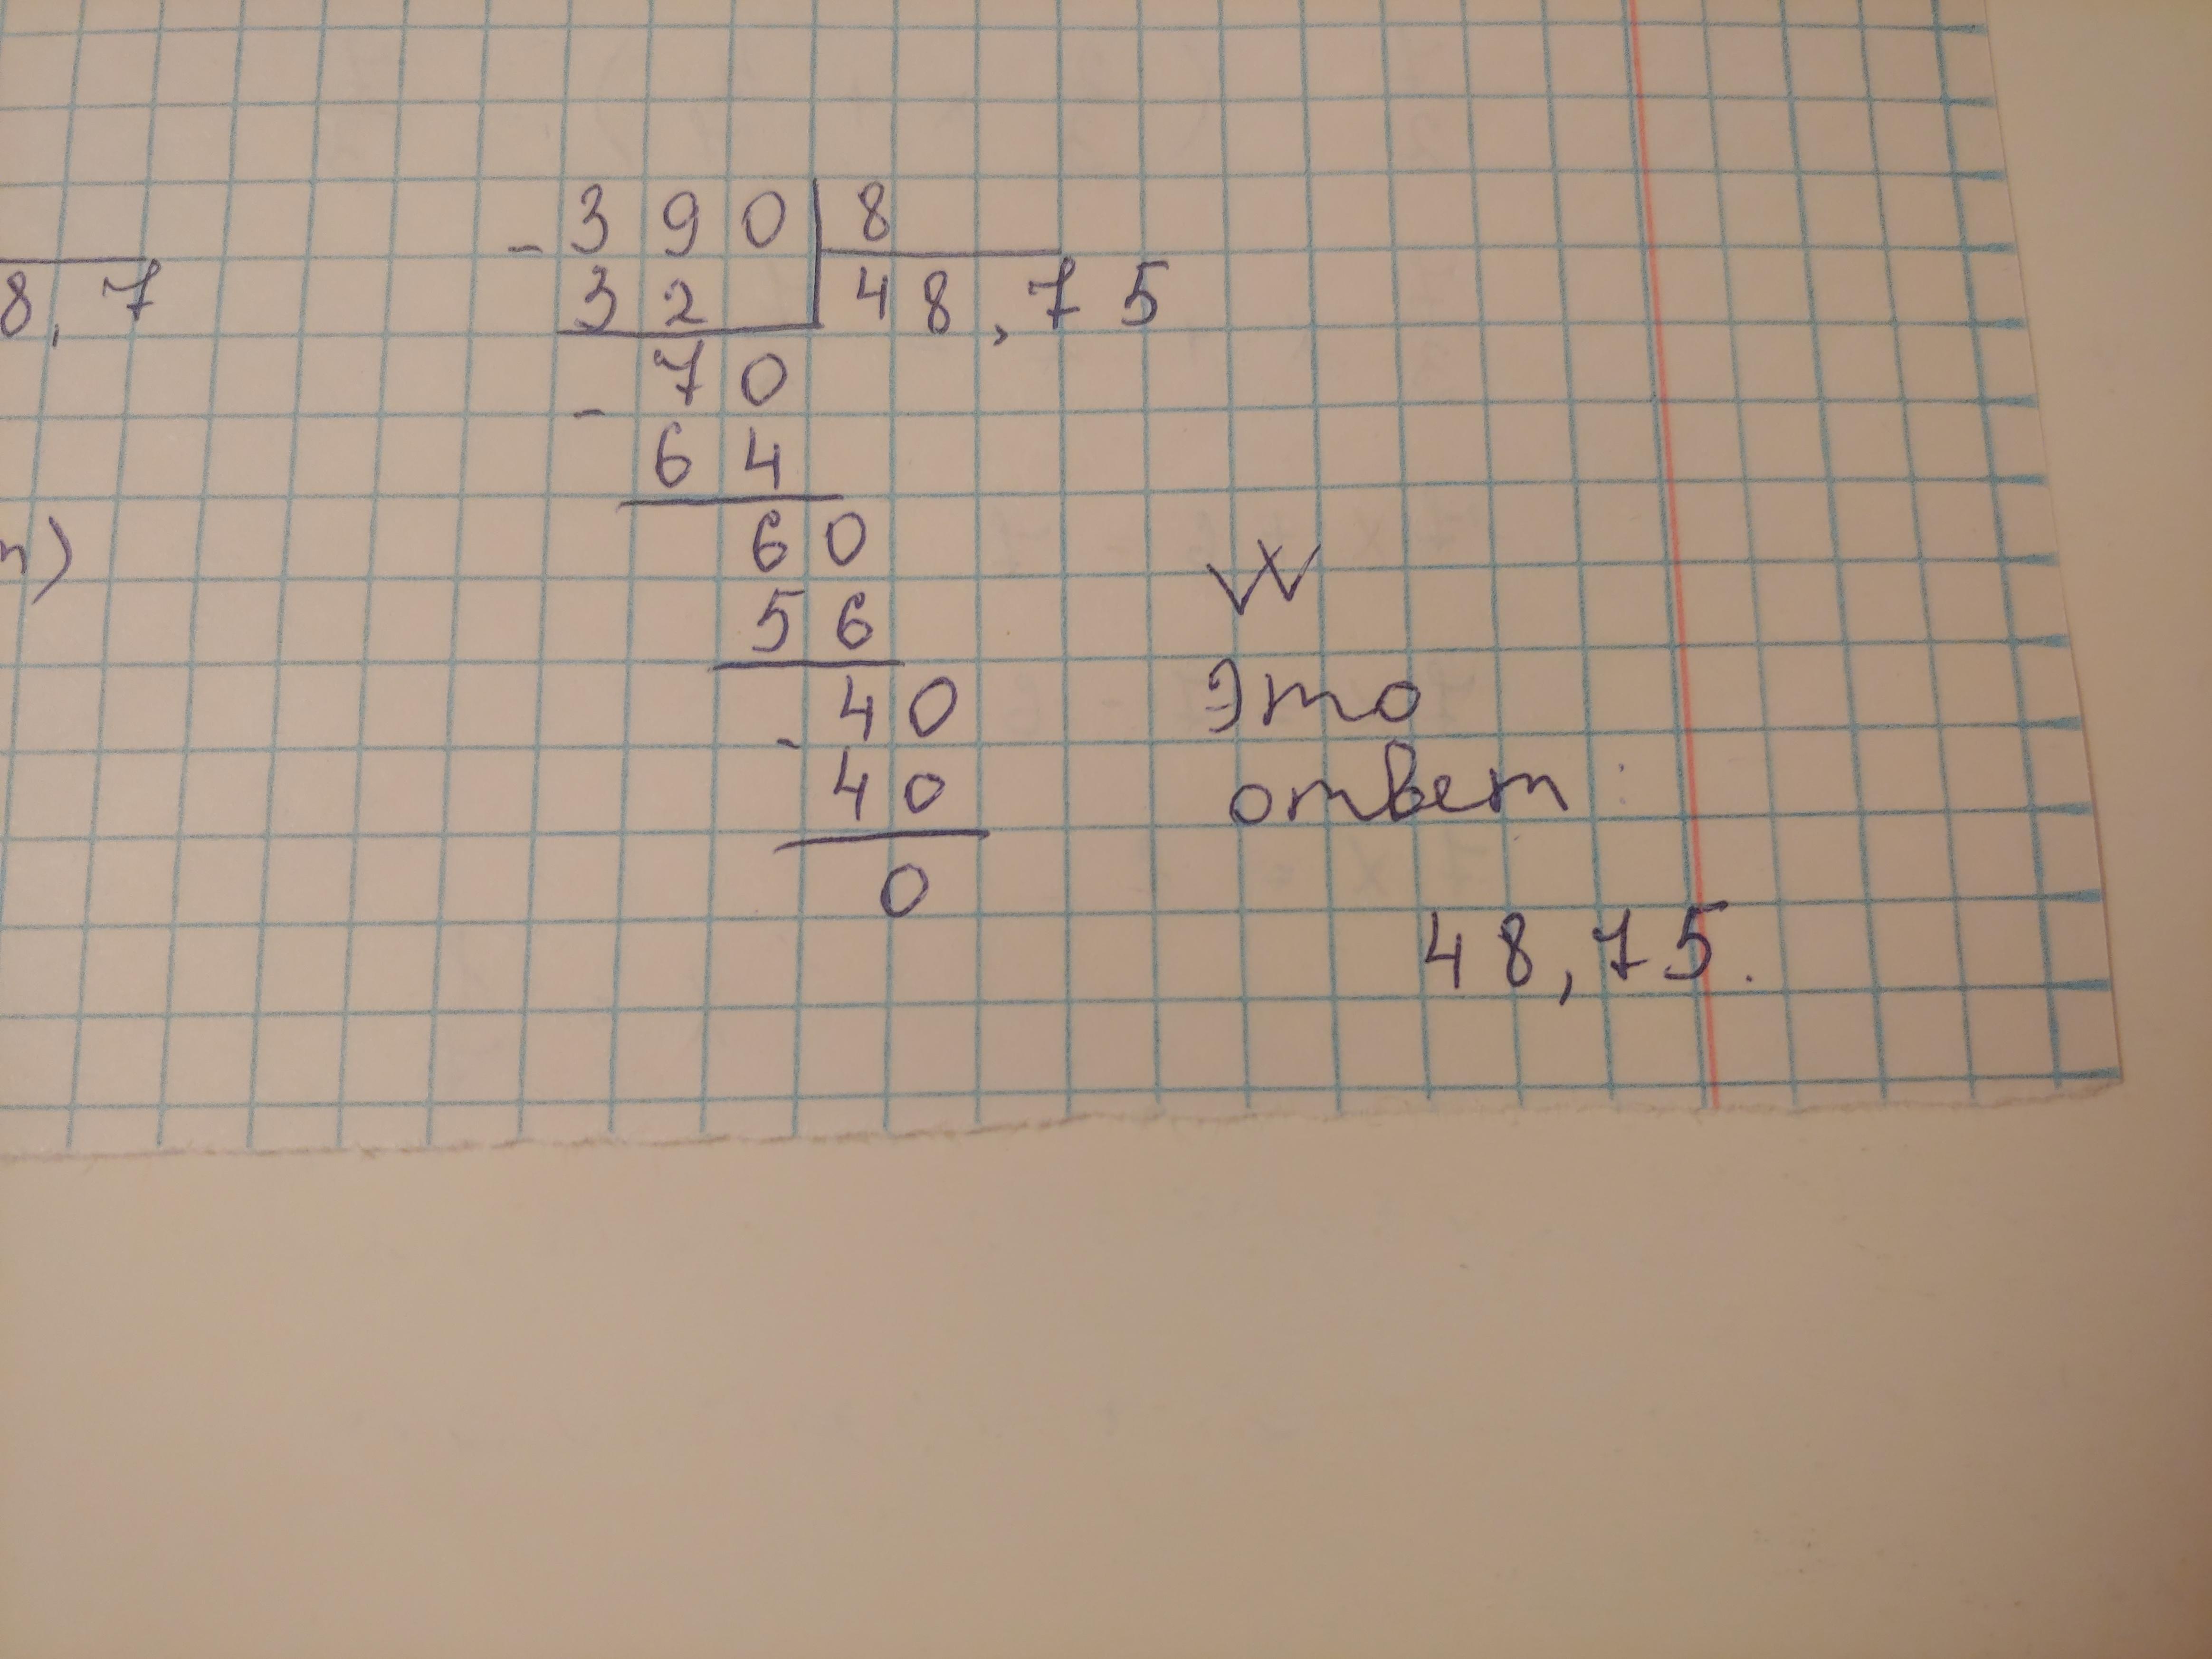 - 390 | 8
8,7
32 | 48,75
70
-
64
60
n)
56
Это
40
-
ответ:
40
0
48,75.